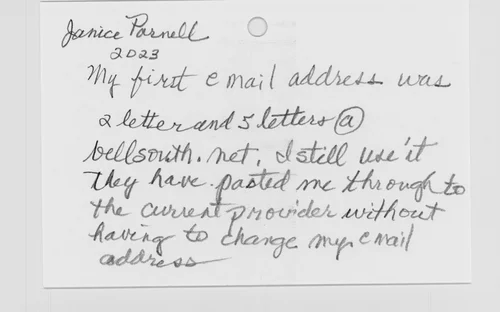 Janice Parnell
2023
My first email address was
2 letter and 5 letters @
bellsouth.net, I still use it
They have pasted me through to
the current provider without
having to change my email
address